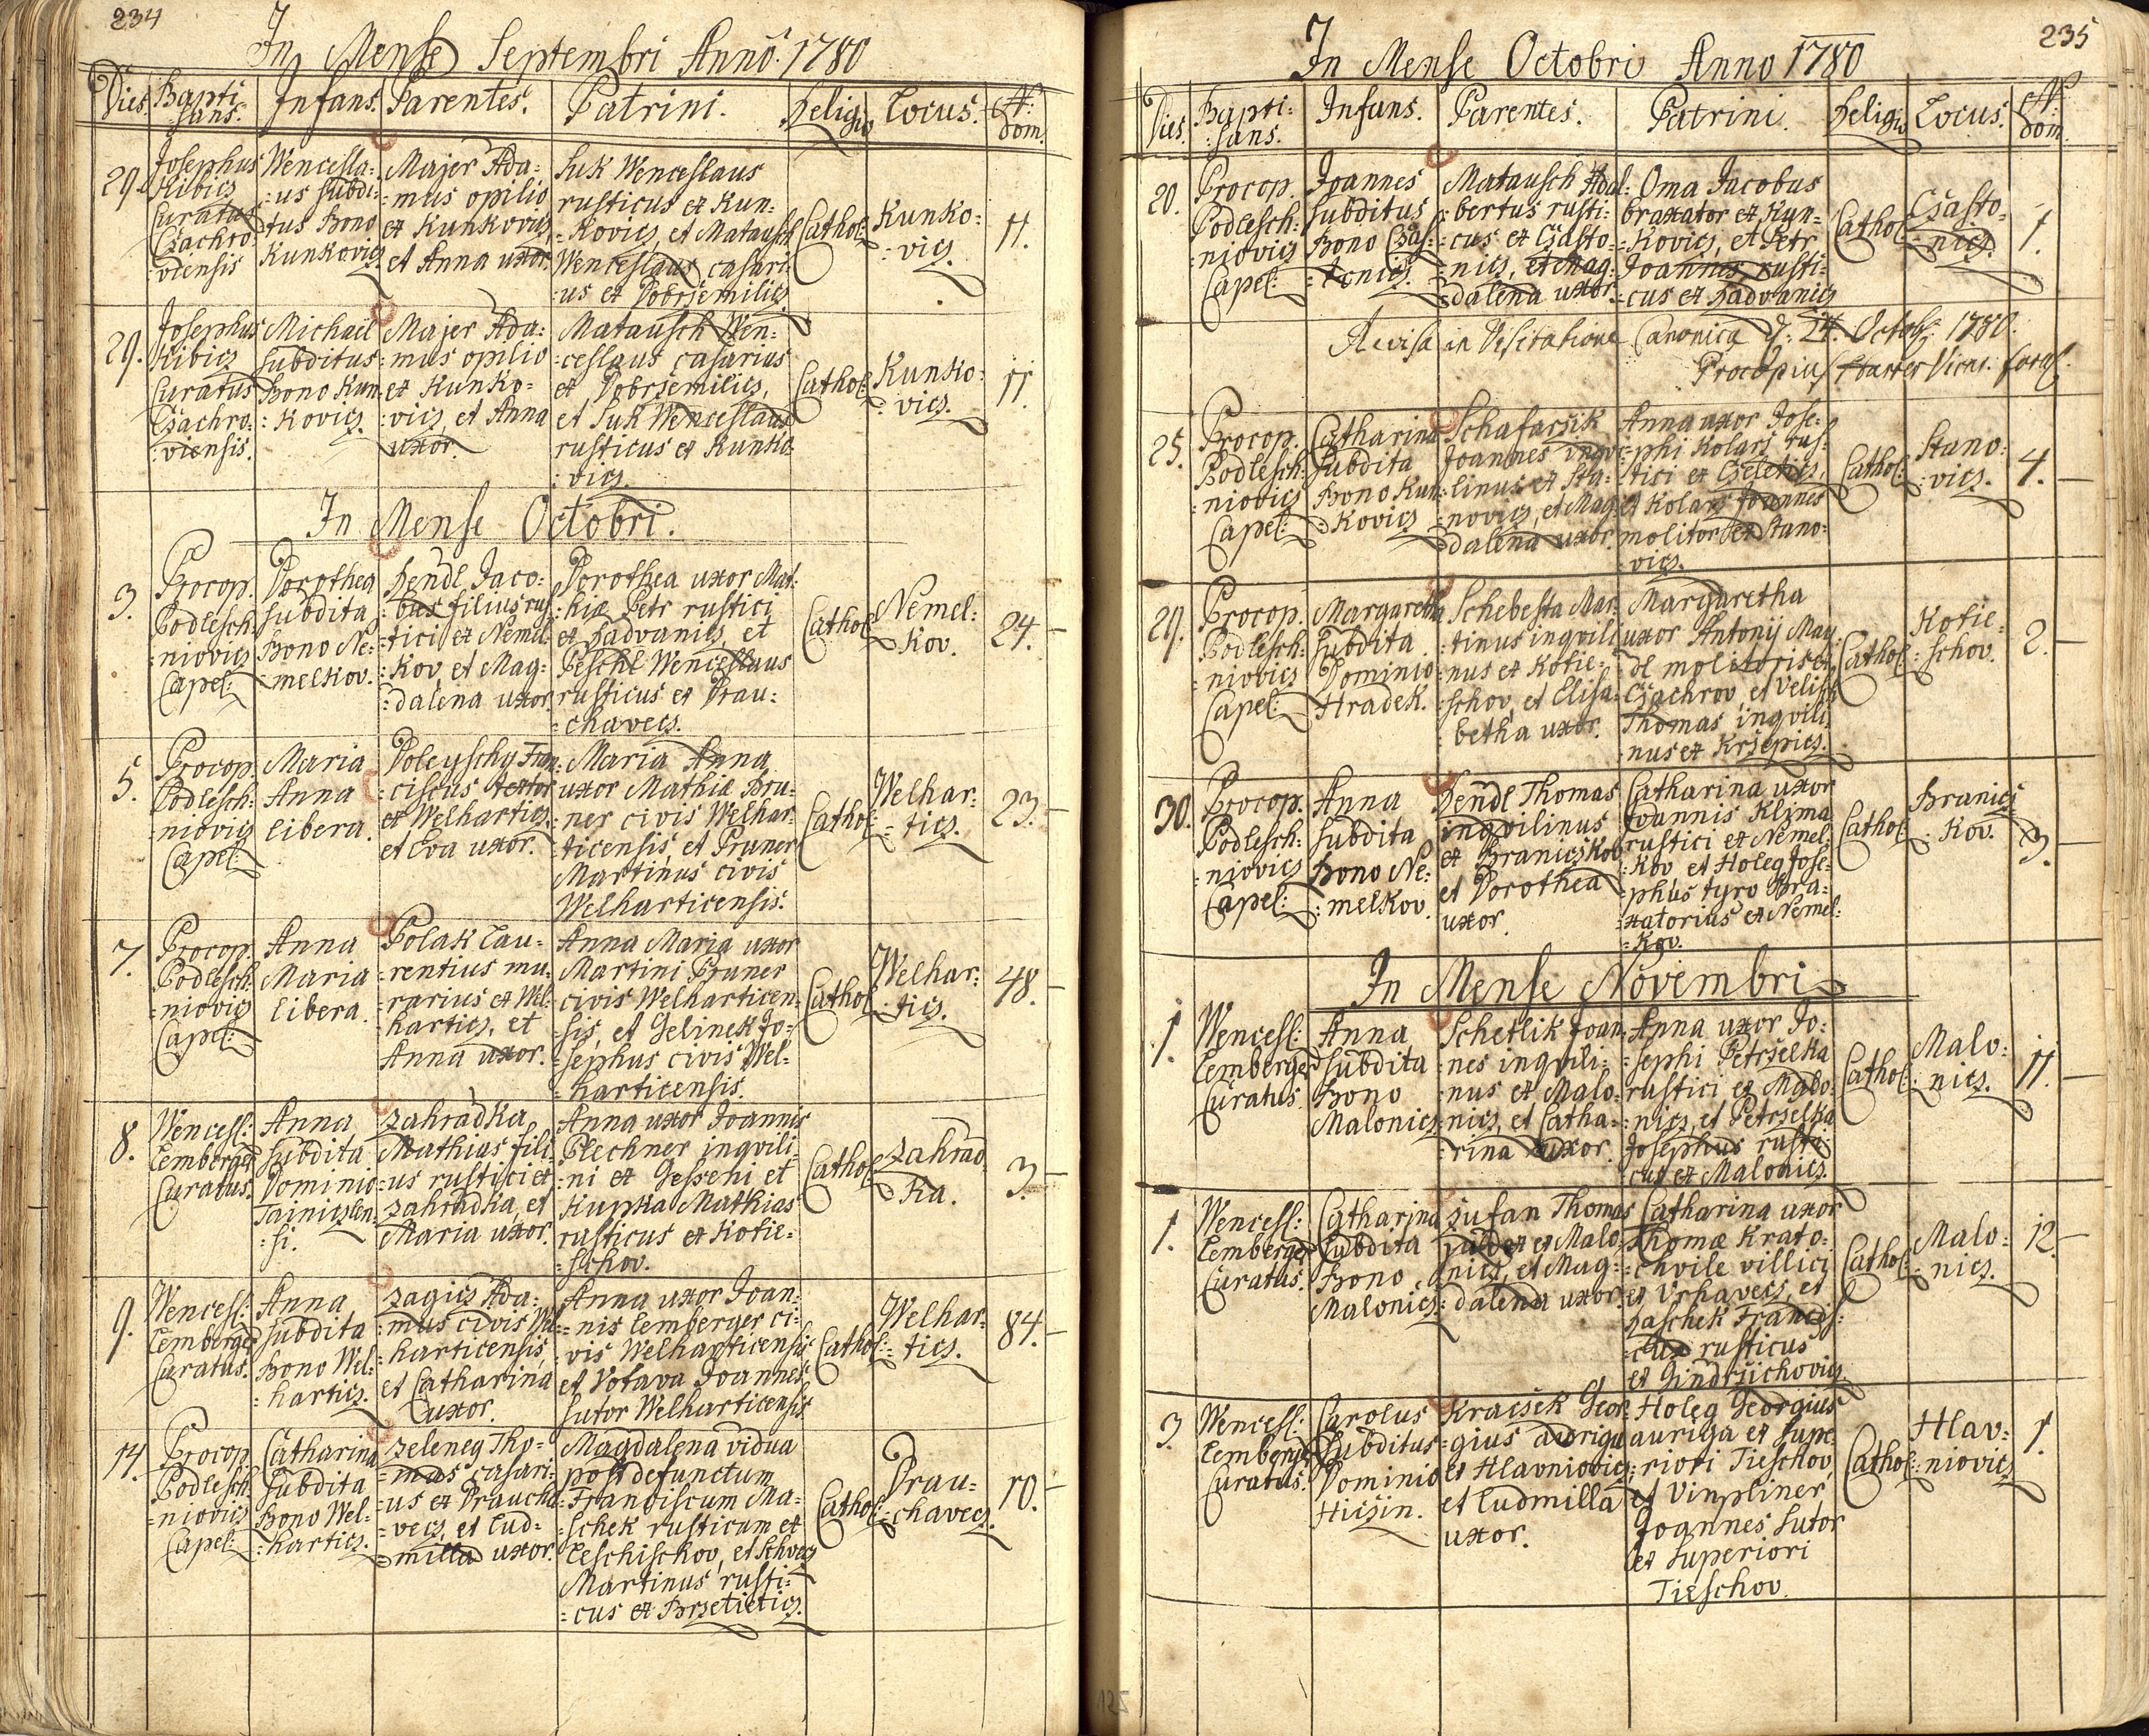 234
In Mense Septembri Anno 1780
Dies. Bapti:sans. Infans. Parentes. Patrini. Religio Locus. N: dom.
29.
Josephus
Ribics
Curatus
Czachro:
:viensis
Wencesla:
:us subdi:
:tus Bono
Kunkovics
Majer Ada:
:mus opilio
ex Kunkovics
et Anna uxor.
Suk Wenceslaus
rusticus ex Kun:
:kovics, et Matausch
Wenceslaus casari:
:us ex Dobrzemilics
Cathol:
Kunko:
:vics.
11.
29.
Josephus
Ribics
Curatus
Czachro:
:viensis.
Michael
subditus
Bono Kun:
:kovics.
Majer Ada:
:mus opilio
ex Kunko:
:vics, et Anna
uxor.
Matausch Wen:
:ceslaus casarius
ex Dobrzemilics,
et Suk Wenceslaus
rusticus ex Kunko:
:vics.
Cathol:
Kunko:
:vics.
11.
In Mense Octobri.
3.
Procop.
Podlesch:
:niovics
Capel:
Dorothea
subdita
Bono Ne:
:melkov.
Hendl Jaco:
:bus filius rus:
:tici ex Nemel:
:kov, et Mag:
:dalena uxor.
Dorothea uxor Mat:
:hiæ Petr rustici
ex Radvanics, et
Peschl Wenceslaus
rusticus ex Drau:
:chavecs.
Cathol:
Nemel:
:kov.
24.
5.
Procop.
Podlesch:
:niovics
Capel:
Maria
Anna
libera.
Poleyschy Fran:
:ciscus textor
ex Welhartics,
et Eva uxor.
Maria Anna
uxor Mathiæ Bru:
:ner civis Welhar:
:ticensis, et Pruner
Martinus civis
Welharticensis.
Cathol:
Welhar:
:tics.
23.
7.
Procop.
Podlesch:
:niovics
Capel:
Anna
Maria
libera.
Polak Lau:
:rentius mu:
:rarius ex Wel:
:hartics, et
Anna uxor.
Anna Maria uxor
Martini Pruner
civis Welharticen:
:sis, et Gelinek Jo:
:sephus civis Wel:
:harticensis.
Cathol:
Welhar:
:tics.
48.
8.
Wencesl:
Lemberger
Curatus.
Anna
subdita
Dominio
Tainiczen:
:si.
Zahradka
Mathias fili:
:us rustici ex
Zahradka, et
Maria uxor.
Anna uxor Joannis
Plechner inqvili:
:ni ex Gesseni et
Kupka Mathias
rusticus ex Kotie:
:schov.
Cathol:
Zahrad:
:ka.
3.
9.
Wencesl:
Lemberger
Curatus.
Anna
subdita
Bono Wel:
:hartics.
Zagics Ada:
:mus civis Wel:
:harticensis,
et Catharina
uxor.
Anna uxor Joan:
:nis Lemberger ci:
:vis Welharticensis
et Votava Joannes
sutor Welharticensis
Cathol:
Welhar:
:tics.
84.
14.
Procop.
Podlesch:
:niovics
Capel:
Catharina
subdita
Bono Wel:
:hartics.
Zeleneg Tho:
:mas casari:
:us ex Draucha:
:vecs, et Lud:
:milla uxor.
Magdalena vidua
post defunctum
Franciscum Ma:
:schek rusticum ex
Leschischov, et Schvecs
Martinus rusti:
:cus ex Brzetietics.
Cathol:
Drau:
:chavecs.
10.
235
In Mense Octobri Anno 1780
Dies. Bapti:sans. Infans. Parentes. Patrini. Religio Locus. N: dom.
20.
Procop.
Podlesch:
:niovics
Capel:
Joannes
subditus
Bono Czas:
:tonics.
Matausch Adal:
:bertus rusti:
:cus ex Czasto:
:nics, et Mag:
:dalena uxor.
Oma Jacobus
braxator ex Kun:
:kovics, et Petr
Joannes rusti:
:cus ex Radvanics
Cathol:
Czasto:
:nics.
1.
Revisa in Visitatione Canonica d: 24. Octobr: 1780.
Procopius Vicar.
25.
Procop.
Podlesch:
:niovics
Capel:
Catharina
subdita
Bono Kun:
:kovics
Schafarzik
Joannes inqvi:
:linus ex Sta:
:novics, et Mag:
:dalena uxor.
Anna uxor Jose:
:phi Kolarz rus:
:tici ex Czeletics,
et Kolarz Joannes
molitor ex Stano:
:vics.
Cathol:
Stano:
:vics.
4.
29.
Procop.
Podlesch:
:niovics
Capel:
Margaretha
subdita
Dominio
Hradek.
Schebesta Mar:
:tinus inqvili:
:nus ex Kotie:
:schov, et Elisa:
:betha uxor.
Margaretha
uxor Antonij May:
:dl molitoris ex
Czachrov, et Velisch
Thomas inqvili:
:nus ex Krzepics.
Cathol:
Kotie:
:schov.
2.
30.
Procop.
Podlesch:
:niovics
Capel:
Anna
subdita
Bono Ne:
:melkov.
Hendl Thomas
inqvilinus
ex Braniczkov
et Dorothea
uxor.
Catharina uxor
Joannis Klima
rustici ex Nemel:
:kov et Holeg Jose:
:phus tyro Bra:
:xatorius ex Nemel:
:kov.
Cathol:
Branicz:
:kov.
3.
In Mense Novembri
1.
Wencesl:
Lemberger
Curatus.
Anna
subdita
Bono
Malonics
Schetlik Joan:
:nes inqvili:
:nus ex Malo:
:nics, et Catha:
:rina uxor.
Anna uxor Jo:
:sephi Petrzelka
rustici ex Malo:
:nics, et Petrzelka
Josephus rusti:
:cus ex Malonics.
Cathol:
Malo:
:nics.
11.
1.
Wencesl:
Lemberger
Curatus.
Catharina
subdita
Bono
Malonics:
Zufan Thomas
ex Malo:
:nics, et Mag:
:dalena uxor.
Catharina uxor
Thomæ Krato:
:chvile villici
ex Vrhavecs, et
Haschek Francis:
:cus rusticus
ex Gindrzichovics.
Cathol:
Malo:
:nics.
12.
3.
Wencesl:
Lemberger
Curatus.
Carolus
subditus
Dominio
Hiczin.
Kraczek Geor:
:gius auriga
ex Hlavniovics
et Ludmilla
uxor.
Holeg Georgius
auriga ex Supe:
:riori Tieschov,
et Vinpliner
Joannes Sutor
ex Superiori
Tieschov.
Cathol:
Hlav:
:niovics
1.